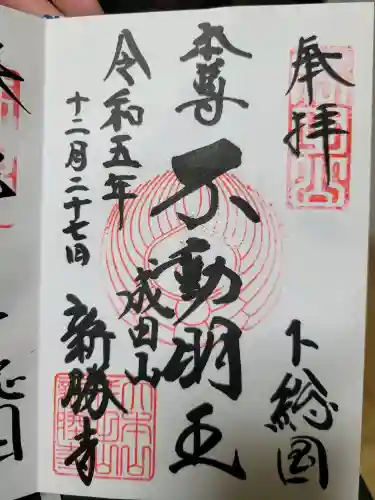 奉拝
下総国
本尊
不動明王
成田山
新勝寺
令和五年
十二月二十七日